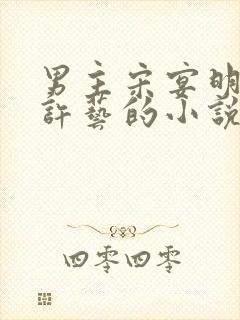 男主宋宴明
許藝的小說
四零四零